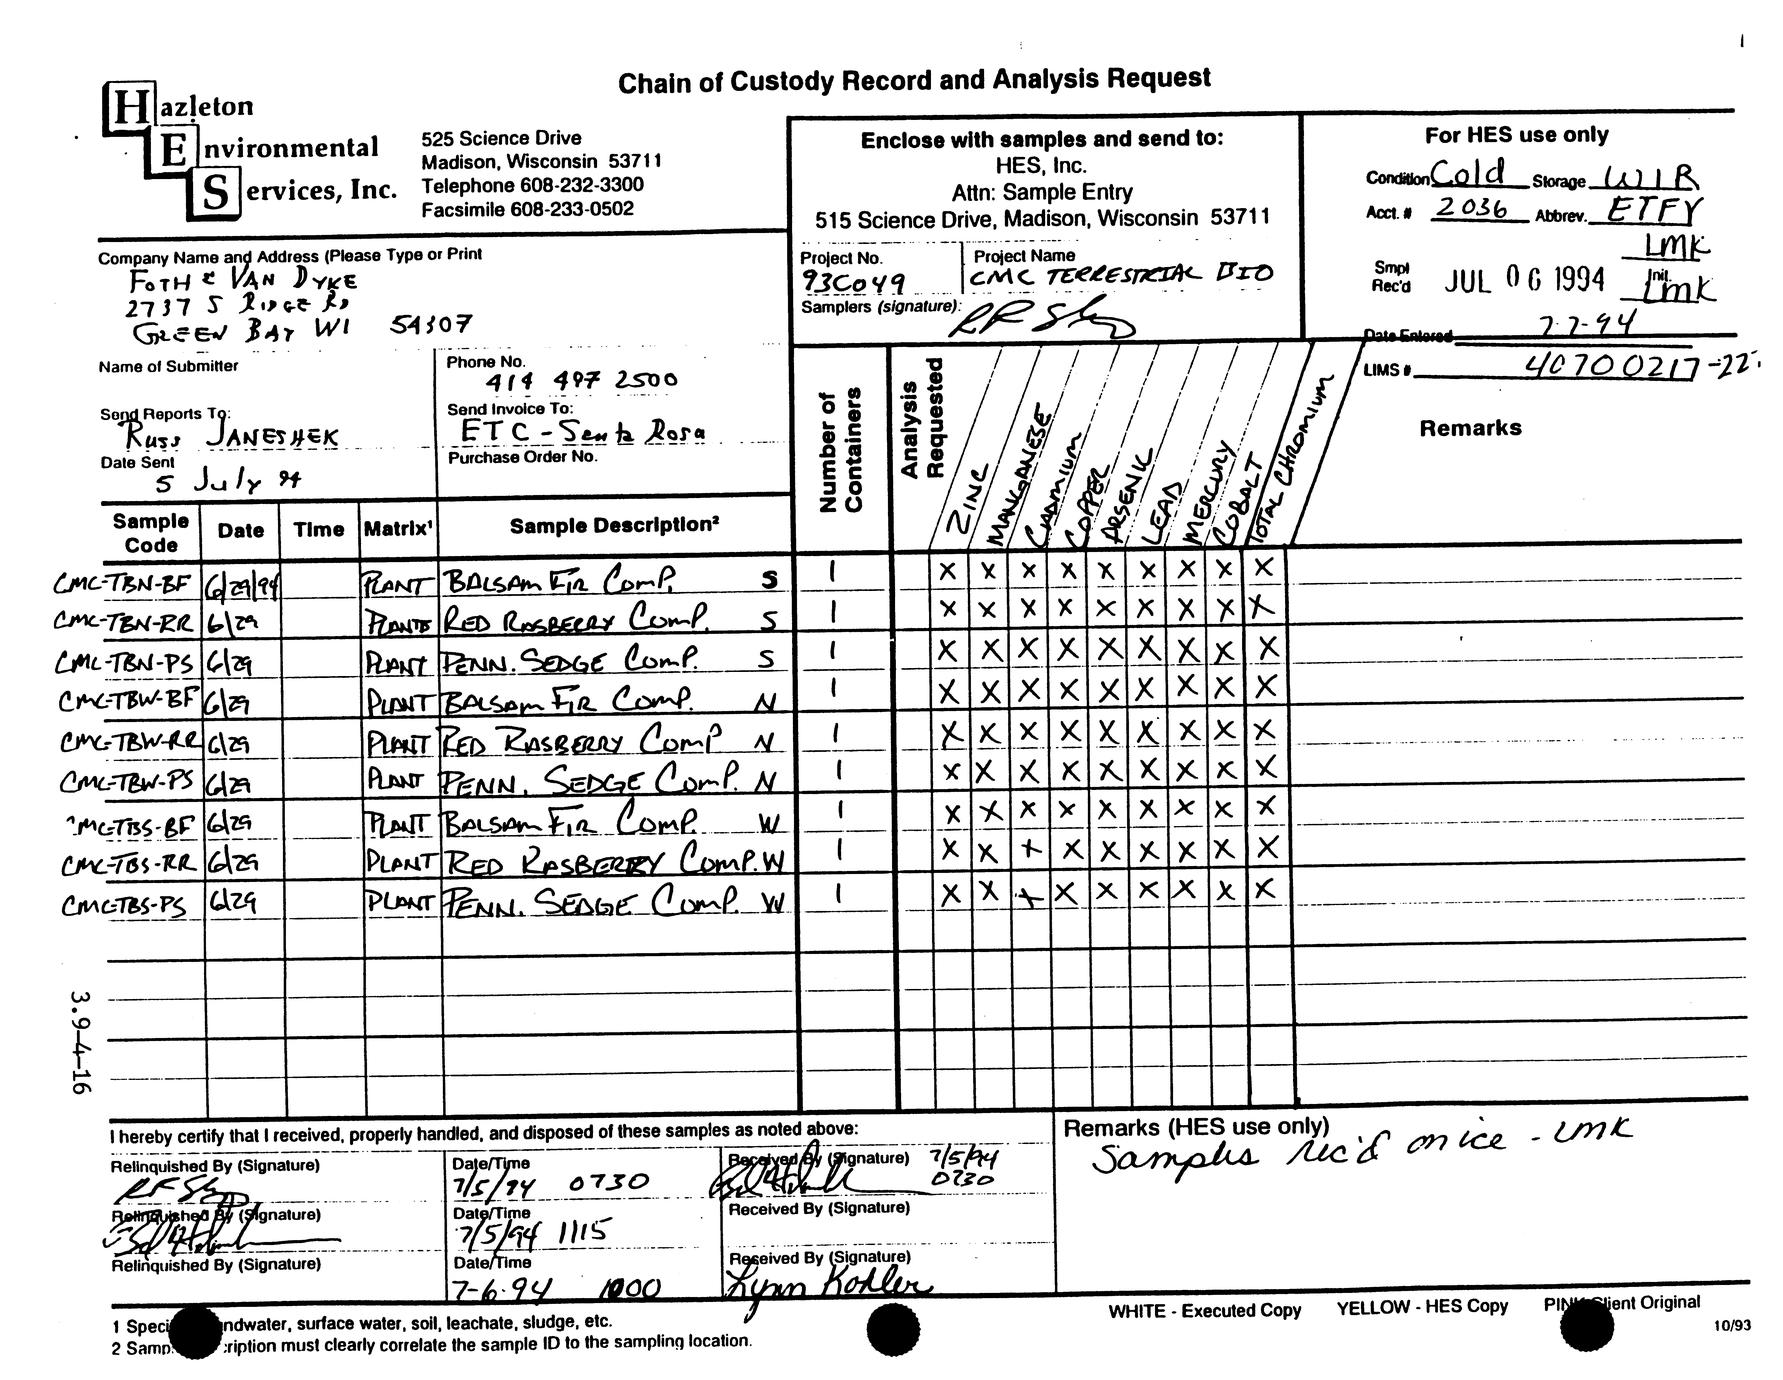 Chain of Custody Record and Analysis Request
Hazleton
Environmental
Services, Inc.
525 Science Drive
Madison, Wisconsin 53711
Telephone 608-232-3300
Facsimile 608-233-0502
Enclose with samples and send to:
HES, Inc.
Attn: Sample Entry
515 Science Drive, Madison, Wisconsin 53711
For HES use only
Condition Cold Storage WIR
Acct. # 2036 Abbrev. ETFY
LMK
Smpl Rec'd JUL 06 1994 Init. LMK
Date Entered 7-7-94
LIMS # 40700217-22
Company Name and Address (Please Type or Print
FOTH & VAN DYKE
2737 S RIDGE RD
GREEN BAY WI 54307
Project No. 93C049
Project Name CMC TERRESTRIAL BIO
Samplers (signature):
Name of Submitter
Phone No.
414 497 2500
Send Reports To:
Russ JANESHEK
Send Invoice To:
ETC - Santa Rosa
Date Sent
5 July 94
Purchase Order No.
Number of Containers
Analysis Requested
ZINC
MANGANESE
CADMIUM
COPPER
ARSENIC
LEAD
MERCURY
COBALT
TOTAL CHROMIUM
Remarks
Sample Code Date Time Matrix¹ Sample Description²
CMC-TBN-BF 6/29/94 PLANT BALSAM FIR COMP. S 1 X X X X X X X X X
CMC-TBN-RR 6/29 PLANTS RED RASBERRY COMP. S 1 X X X X X X X X X
CMC-TBN-PS 6/29 PLANT PENN. SEDGE COMP. S 1 X X X X X X X X X
CMC-TBW-BF 6/29 PLANT BALSAM FIR COMP. N 1 X X X X X X X X X
CMC-TBW-RR 6/29 PLANT RED RASBERRY COMP N 1 X X X X X X X X X
CMC-TBW-PS 6/29 PLANT PENN. SEDGE COMP. N 1 X X X X X X X X X
CMC-TBS-BF 6/29 PLANT BALSAM FIR COMP. W 1 X X X X X X X X X
CMC-TBS-RR 6/29 PLANT RED RASBERRY COMP. W 1 X X X X X X X X X
CMC-TBS-PS 6/29 PLANT PENN. SEDGE COMP. W 1 X X X X X X X X X
3.9-4-16
I hereby certify that I received, properly handled, and disposed of these samples as noted above:
Relinquished By (Signature)
Date/Time
7/5/94 0730
Received By (Signature) 7/5/94
0730
Relinquished By (Signature)
Date/Time
7/5/94 1115
Received By (Signature)
Relinquished By (Signature)
Date/Time
7-6-94 1000
Received By (Signature)
Lynn Kohler
Remarks (HES use only)
Samples rec'd on ice - LMK
1 Speci ndwater, surface water, soil, leachate, sludge, etc.
2 Samp ription must clearly correlate the sample ID to the sampling location.
WHITE - Executed Copy YELLOW - HES Copy PINK Client Original
10/93